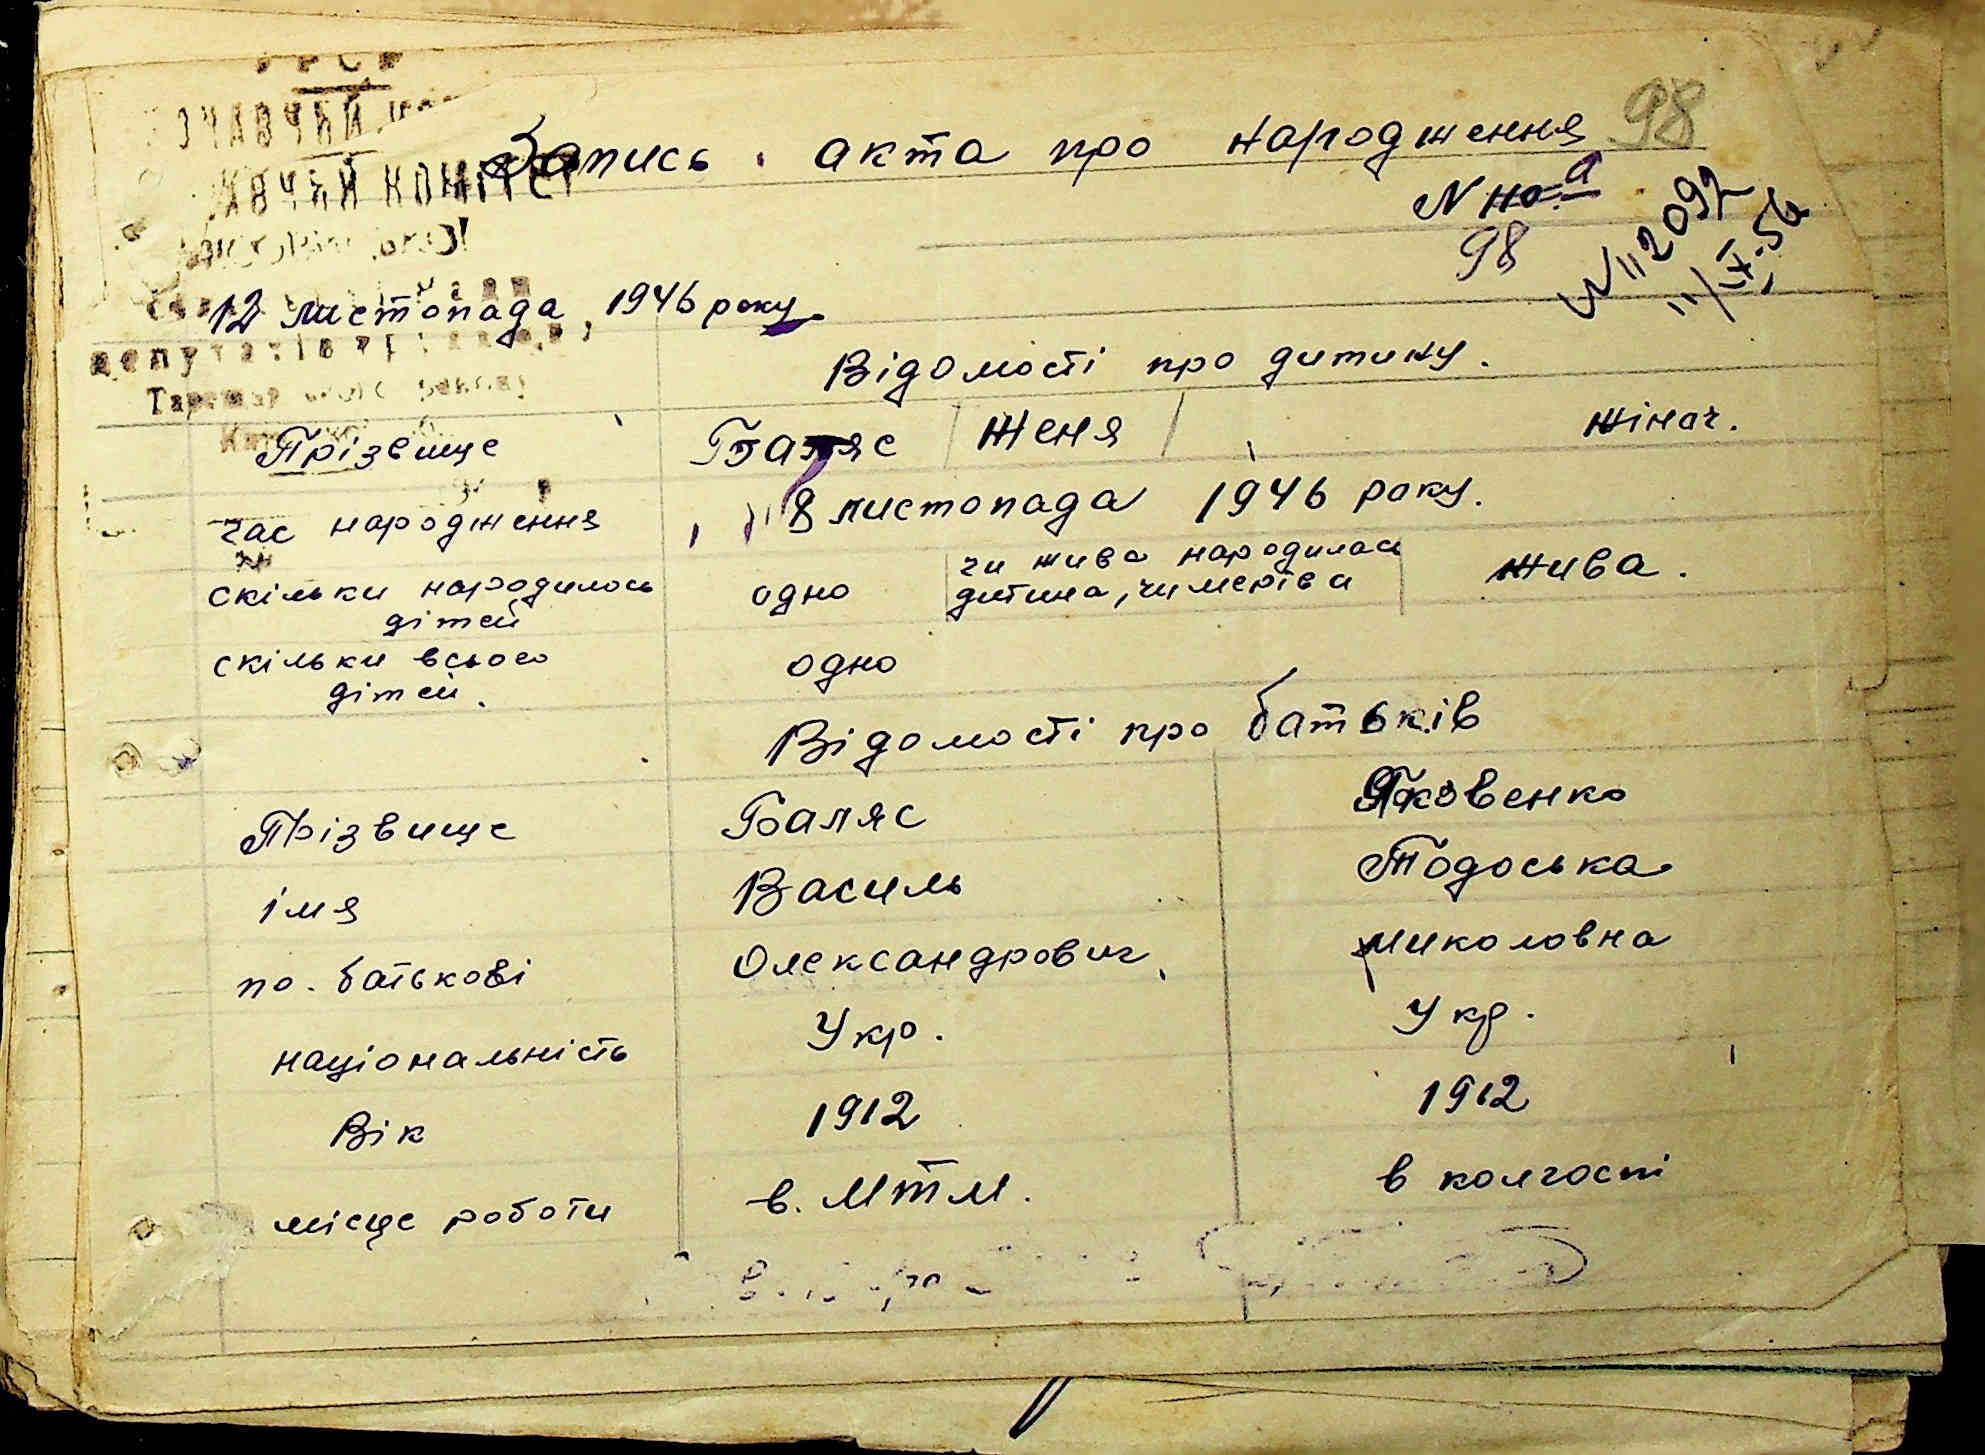 98
Запись акта про народження
N
98
N 112092
11/IX.56
12 листопада 1946 року
депутатів
Прізвище Баляс Женя жіноч.
час народження 8 листопада 1946 року.
скільки народилось дітей одно чи жива народилась дитина, чи мертва жива.
скільки всього дітей. одно
Відомості про дитину.
Відомості про батьків
Прізвище Баляс Яковенко
імя Василь Тодоська
по. батькові Олександрович Миколовна
національність Укр. Укр.
Вік 1912 1912
місце роботи в. МТМ. в колгоспі